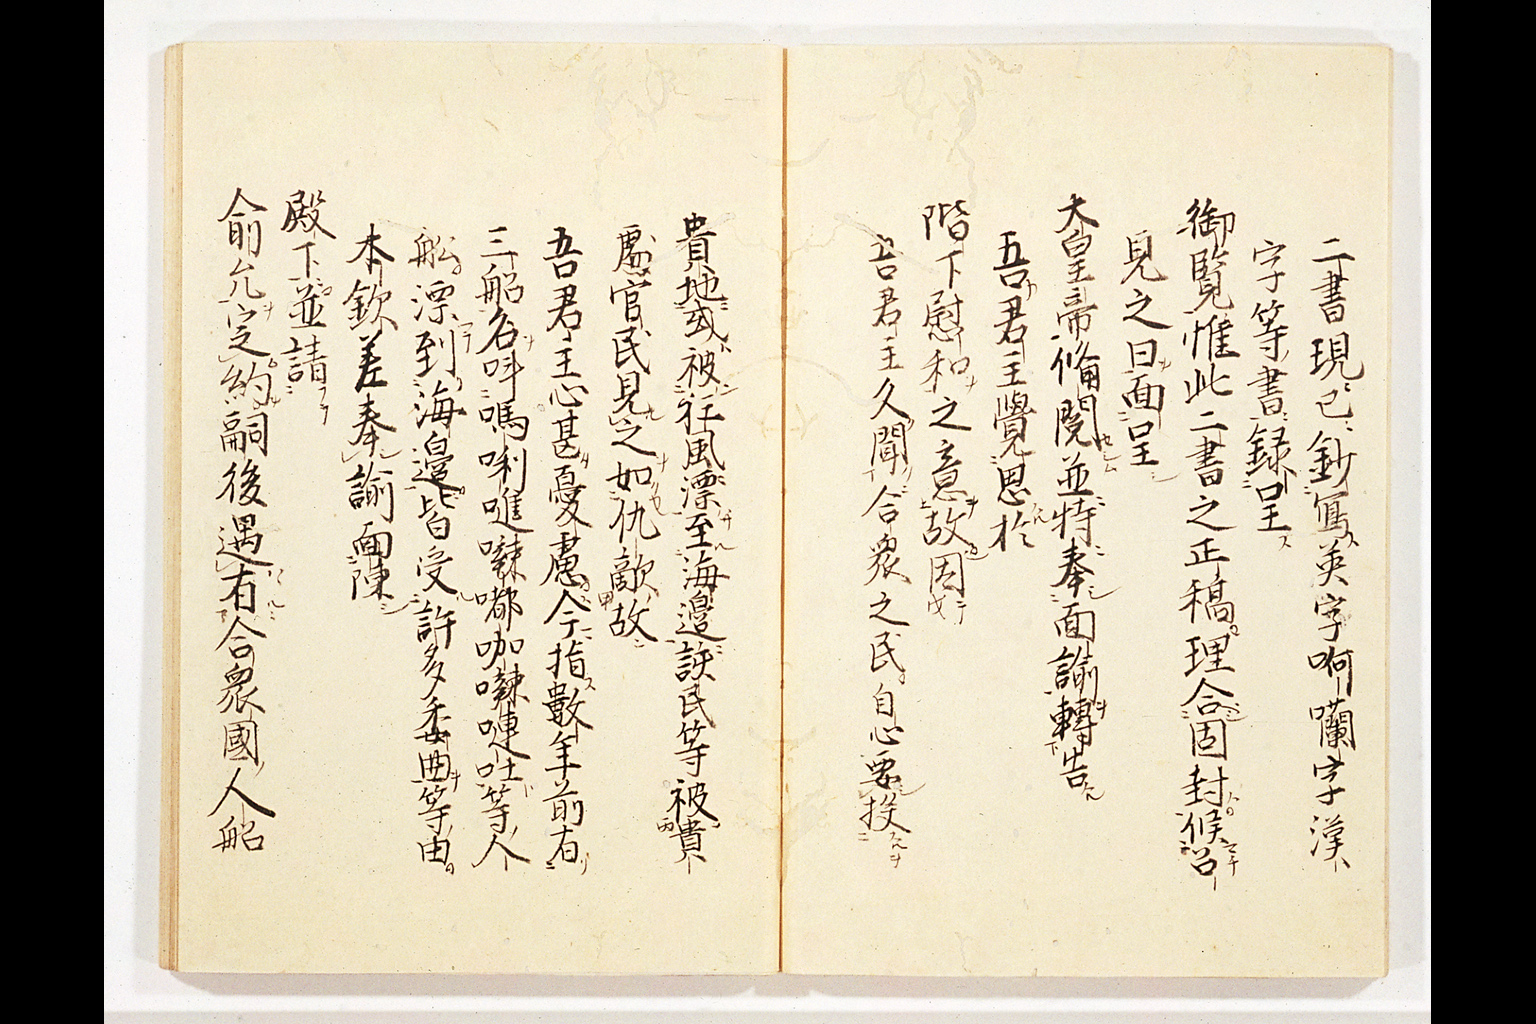 二書現已鈔寫英字啊囒字漢
字等書録呈
御覧惟此二書之正稿理合固封候召
見之日面呈
大皇帝俻閲並特奉面諭轉告
吾君主覺思於
階下慰和之意故因
吾君主久聞合衆之民自心要投
貴地或被狂風漂至海邉該民等被貴
處官民見之如仇敵故
吾君主心甚憂慮今指數年前有
三船名吽嗎唎𠯿㗚嘟咖㗚嗹吐等人
船漂到海邉皆受許多委曲等由
本欽差奉諭面陳
殿下並請
俞允定約嗣後遇有合衆國人船